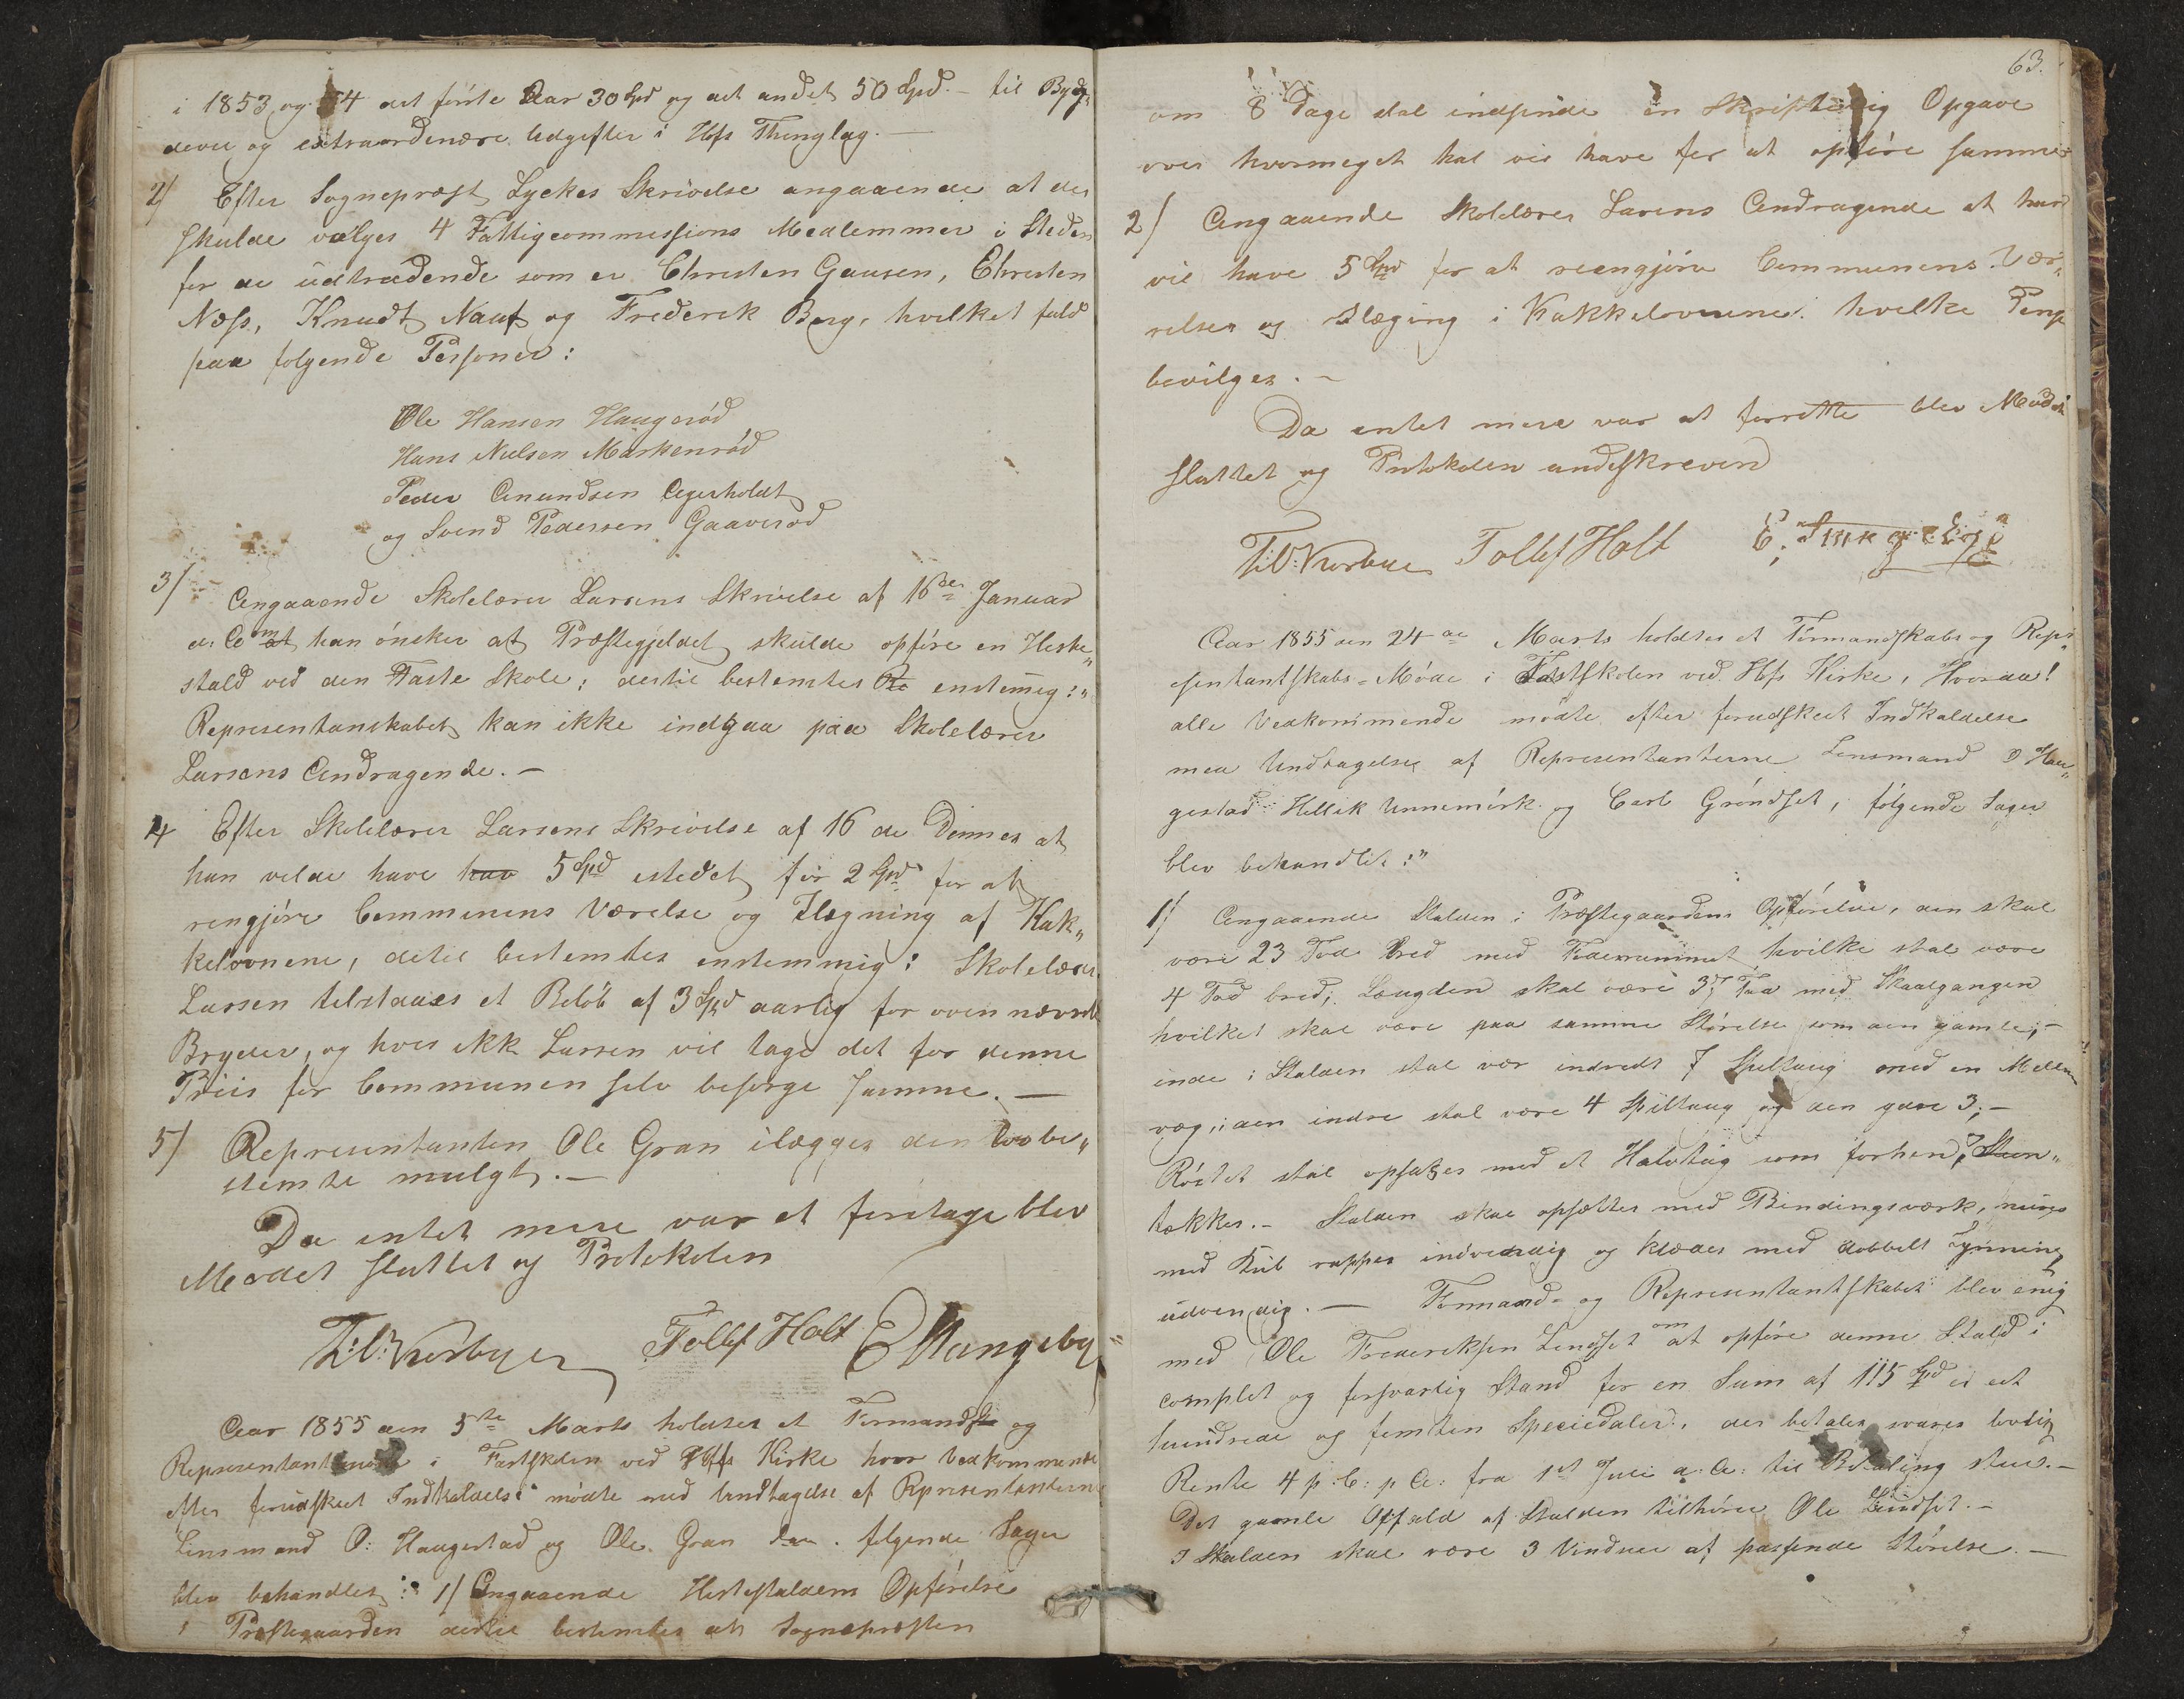 i 1853 og 54 det förste Aar 30 Spd og det andet 50 Spd. - til Byg„
dever og extraordenære Udgifter i Hofs Thinglag. —
2/ Efter Sognepræst Lyckes Skrivelse angaaende at der
skulde vælges 4 Fattigcommissions Medlemmer i Steden
for de udtrædende som er Christen Gausen, Christen
Næss, Knudt Nauf og Frederek Berg, hvilket fald
paa folgende Personer:
Ole Hansen Haugeröd
Hans Nielsen Markenröd
Peder Amundsen Agerholdt
og Svend Pedersen Gaaseröd
3/ Angaaende Skolelærer Larsens Skrivelse af 16de Januar
d. A om at han önsker at Præstegjeldet skulde opföre en Heste„
stald ved den Faste Skole; dertil bestemtes enstemig:„
Representanskabet kan ikke indgaa paa Skolelærer
Larsens Andragende. —
4 Efter Skolelærer Larsens Skrivelse af 16 de Dennes at
han vilde have 5 Spd istedet för 2 Spd for at
rengjöre Communens Værelse og Ilægning af Kak„
kelovnene, detil bestemtes enstemmig: Skolelærer
Larsen tilstaaes et Belöb af 3 Spd aarlig for oven nævnte
Bryderi, og hvis ikk Larsen vil tage det for denne
Priis før Communen selv besörge samme. —
5/ Representanten Ole Gran ilægges den lovbe„
stemte mulgt. —
Da intet mere var at foretage blev
Mødet sluttet og Protokolen
Tollef Holt E Mangeby
Aar 1855 den 5te Marts holdtes et Formandsk og
Representantmöde i Fastskolen ved Hofs Kirke hvor Vedkommende
efter forudskeet Indkaldelse mödte med Undtagelse af Representanterne
Linsmand O: Haugestad og Ole Gran. folgende Sager
blev behandlet: 1/ Angaaende Hestestaldens Opförelse
i Præstegaarden dertil bestemtes at Sognepræsten
63.
om 8 Dage skal indsende en Skriftelig Opgave
over hvormeget hal vil have for at opföre samme
2/ Angaaende Skolelærer Larsens Andragende at han
vil have 5 Spd for at reengjöre Communens Vær„
relser og Ilæging i Kakkelovnene. hvilke Penge
bevilges. —
Da intet mere var at forrette blev Mödet
sluttet og Protokolen undeskreven
Tollef Holt
Aar 1855 den 24de Marts holdtes et Formandskabs og Repr„
esentantskabs-Möde i Fastskolen ved Hofs Kirke, Hvorda!
alle Vedkommende mödte efter forudskeet Indkaldelse
med Undtagelse af Representanterne Linsmand O Hau„
gestad Hellik Unnemörk og Carl Gröndset, fölgende Sager
blev behandlet:„
1/ Angaaende Stalden i Præstegaardens Opförelse, den skal
være 23 Fod bred med Foderummet hvilke skal være
4 Fod bred; Længden skal være 37 Fod med Skaalgangen
hvilket skal være paa samme Störelse som den gamle, —
inde i Stalden skal vær indredt 7 Spiltaug med en Mellem
væg, i den indre skal være 4 Spiltaug og den ydre 3; —
Röstet skal opsættes med et Halvtag som forhen, Steen„
tækkes. — Stalden skal opsættes med Bindingsværk, mures
med Kub rappes indvendig og klædes med dobbelt Tynning
udvendig. — Formand- og Representantskabet blev enig
med Ole Frederiksen Lindset om at opföre denne Stald i
complet og forsvarlig Stand for en Sum af 115 Spd et
hundrede og femten Speciedaler, der betales svares lovlig
Rente 4 p. C: p A: fra 1st Juli d. A: til Betaling skeer. —
Det gamle Affald af Stalden tilhörer Ole Lindset. —
I Stalden skal være 3 Vinduer af passende Störelse. —